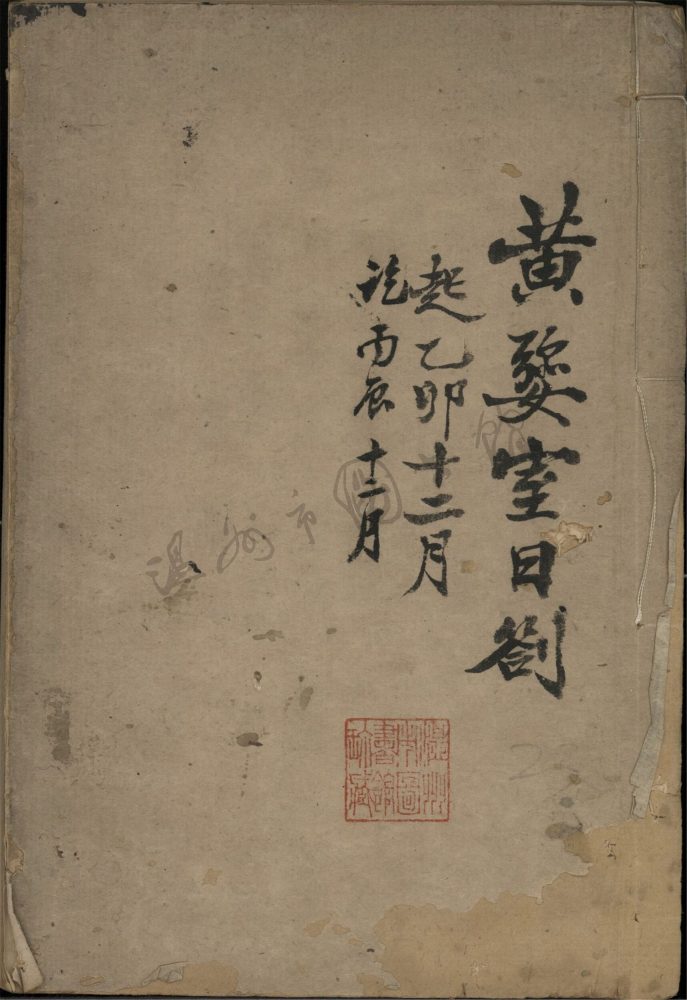 黄婺室日劄
起乙卯十二月
訖丙辰十二月
溫州市圖書館
溫州市圖書館珍藏